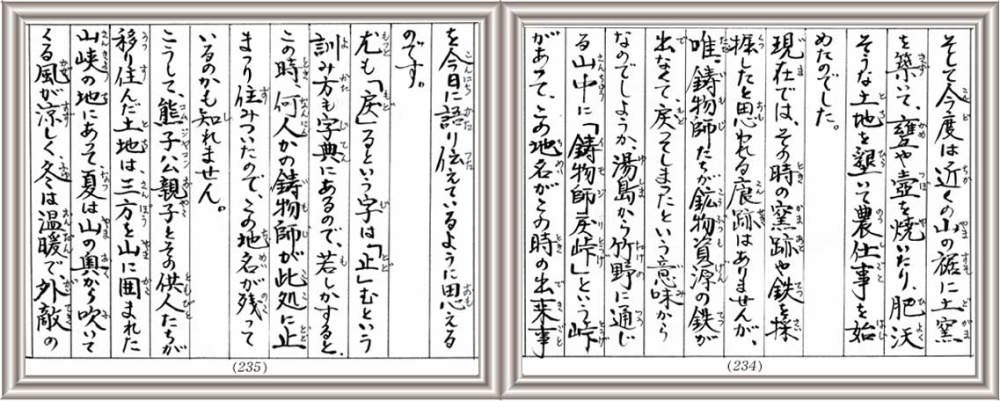 そして今度は近くの山の裾に土窯
を築いて、甕や壺を焼いたり、肥沃
そうな土地を墾いて農仕事を始
めたのでした。
現在では、その時の窯跡や鉄を採
掘したと思われる痕跡はありませんが、
唯、鋳物師たちが鉱物資源の鉄が
出なくて戻ってしまったという意味から
なのでしょうか、湯島から竹野に通じ
る山中に「鋳物師戻峠」という峠
があって、この地名がその時の出来事
(234)
を今日に語り伝えているように思える
のです。
尤も「戻」るという字は「止」むという
訓み方も字典にあるので、若しかすると、
この時、何人かの鋳物師が此処に止
まり住みついたので、この地名が残って
いるのかも知れません。
こうして、熊子公親子とその供人たちが
移り住んだ土地は三方を山に囲まれた
山峡の地にあって、夏は山の奥から吹いて
くる風が涼しく、冬は温暖で、外敵の
(235)